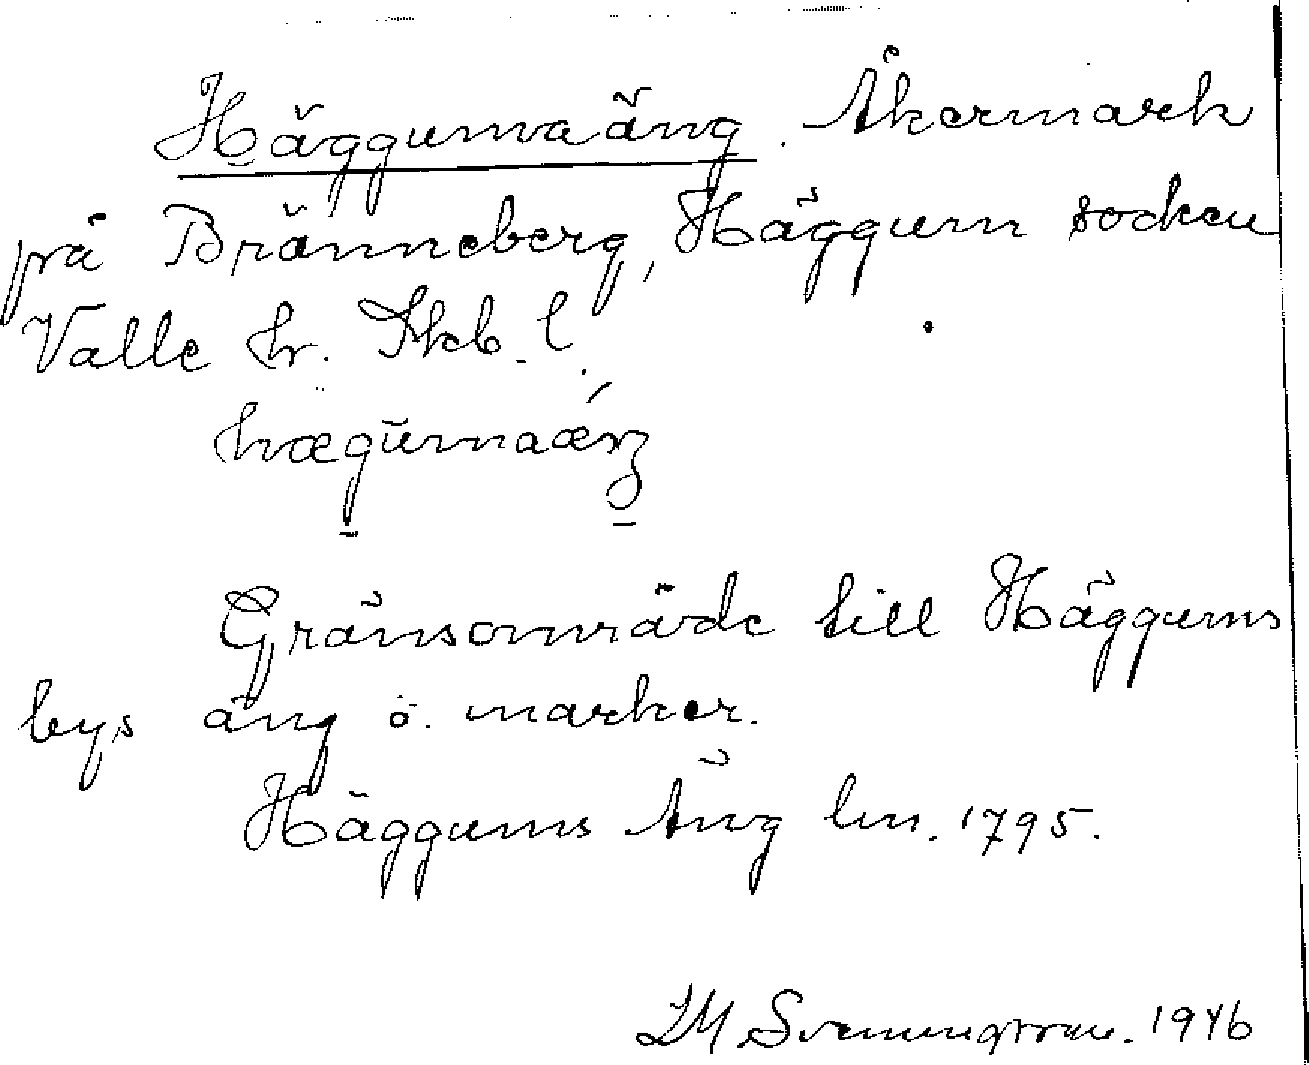 Häggumaäng. Åkermark
på Bränneberg, Häggum socken
Valle hr. Skb. l.
hægūmaǽŋ
Gränsområde till Häggums
bys äng o. marker.
Häggums Äng lm. 1795.
LM Svenungsson. 1946